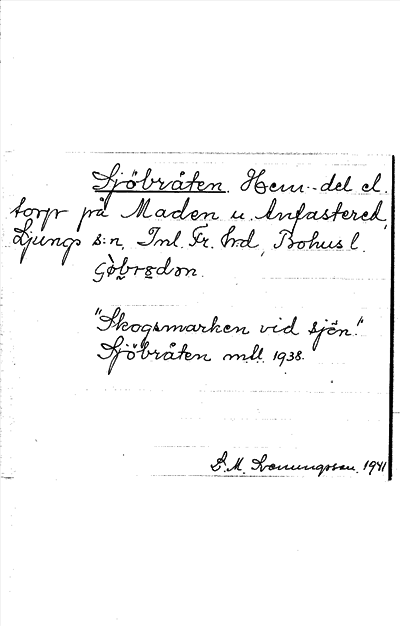 Sjöbråten. Hem.-del el.
torp på Maden u. Anfastered,
Ljungs s:n, Inl. Fr. hrd, Bohusl.
"Skogsmarken vid sjön."
Sjöbråten mtl. 1938.
S. M. 1941